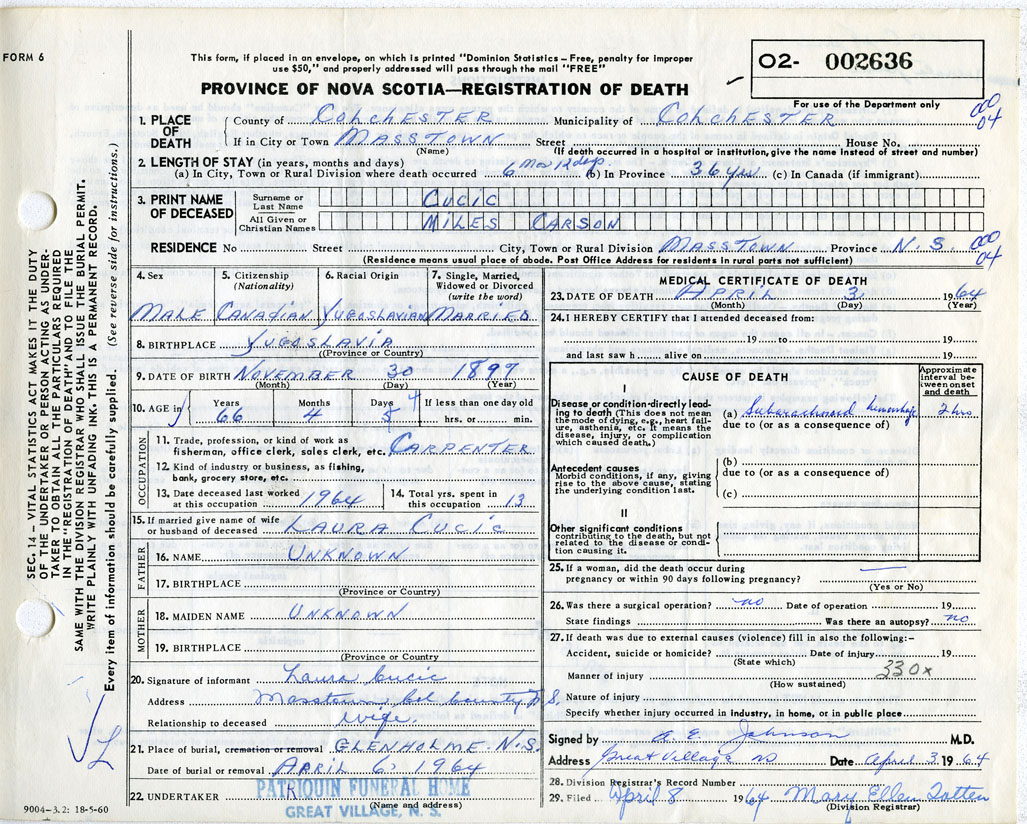 FORM 6
This form, if placed in an envelope, on which is printed "Dominion Statistics – Free, penalty for improper
use $50," and properly addressed will pass through the mail "FREE"
O2- 002636
PROVINCE OF NOVA SCOTIA—REGISTRATION OF DEATH
For use of the Department only
000
04
1. PLACE OF DEATH
County of COLCHESTER Municipality of COLCHESTER
If in City or Town MASSTOWN Street House No.
(Name) (If death occurred in a hospital or institution, give the name instead of street and number)
2. LENGTH OF STAY (in years, months and days)
(a) In City, Town or Rural Division where death occurred 6 Mos 12 days (b) In Province 36 yrs (c) In Canada (if immigrant)
3. PRINT NAME OF DECEASED
Surname or Last Name CUCIC
All Given or Christian Names MILES CARSON
RESIDENCE No Street City, Town or Rural Division MASSTOWN Province N.S.
000
04
(Residence means usual place of abode. Post Office Address for residents in rural parts not sufficient)
4. Sex
MALE
5. Citizenship
(Nationality)
CANADIAN
6. Racial Origin
YUGOSLAVIAN
7. Single, Married,
Widowed or Divorced
(write the word)
MARRIED
8. BIRTHPLACE YUGOSLAVIA
(Province or Country)
9. DATE OF BIRTH NOVEMBER 30 1897
(Month) (Day) (Year)
10. AGE in
Years Months Days If less than one day old
66 4 5 4 hrs. or min.
OCCUPATION
11. Trade, profession, or kind of work as
fisherman, office clerk, sales clerk, etc. CARPENTER
12. Kind of industry or business, as fishing,
bank, grocery store, etc.
13. Date deceased last worked
at this occupation 1964
14. Total yrs. spent in
this occupation 13
15. If married give name of wife
or husband of deceased LAURA CUCIC
FATHER
16. NAME UNKNOWN
17. BIRTHPLACE
(Province or Country)
MOTHER
18. MAIDEN NAME UNKNOWN
19. BIRTHPLACE
(Province or Country
20. Signature of informant Laura Cucic
Address Masstown Col county N.S.
Relationship to deceased wife.
21. Place of burial, cremation or removal GLENHOLME. N.S.
Date of burial or removal APRIL 6, 1964
22. UNDERTAKER PATRIQUIN FUNERAL HOME
(Name and address)
GREAT VILLAGE, N. S.
9004–3.2: 18-5-60
MEDICAL CERTIFICATE OF DEATH
23. DATE OF DEATH APRIL 3 1964
(Month) (Day) (Year)
24. I HEREBY CERTIFY that I attended deceased from:
19 to 19
and last saw h alive on 19
CAUSE OF DEATH
Approximate
interval be-
tween onset
and death
I
Disease or condition directly lead-
ing to death (This does not mean
the mode of dying, e.g., heart fail-
ure, asthenia, etc. It means the
disease, injury, or complication
which caused death.)
(a) Subarachnoid hemorrhage 2 hrs.
due to (or as a consequence of)
Antecedent causes
Morbid conditions, if any, giving
rise to the above cause, stating
the underlying condition last.
(b)
due to (or as a consequence of)
(c)
II
Other significant conditions
contributing to the death, but not
related to the disease or condi-
tion causing it.
25. If a woman, did the death occur during
pregnancy or within 90 days following pregnancy?
(Yes or No)
26. Was there a surgical operation? no Date of operation 19
State findings Was there an autopsy? no
27. If death was due to external causes (violence) fill in also the following:–
Accident, suicide or homicide? Date of injury 19
(State which)
330x
Manner of injury
(How sustained)
Nature of injury
Specify whether injury occurred in industry, in home, or in public place
Signed by A. E. Johnson M.D.
Address Great Village NS Date April 3 1964
28. Division Registrar's Record Number
29. Filed April 8 1964 Mary Ellen Totten
(Division Registrar)
SEC. 14 – VITAL STATISTICS ACT MAKES IT THE DUTY
OF THE UNDERTAKER OR PERSON ACTING AS UNDER-
TAKER TO OBTAIN ALL THE PARTICULARS REQUIRED
IN THE "REGISTRATION OF DEATH" AND TO FILE THE
SAME WITH THE DIVISION REGISTRAR WHO SHALL ISSUE THE BURIAL PERMIT.
WRITE PLAINLY WITH UNFADING INK. THIS IS A PERMANENT RECORD.
Every item of information should be carefully supplied. (See reverse side for instructions.)